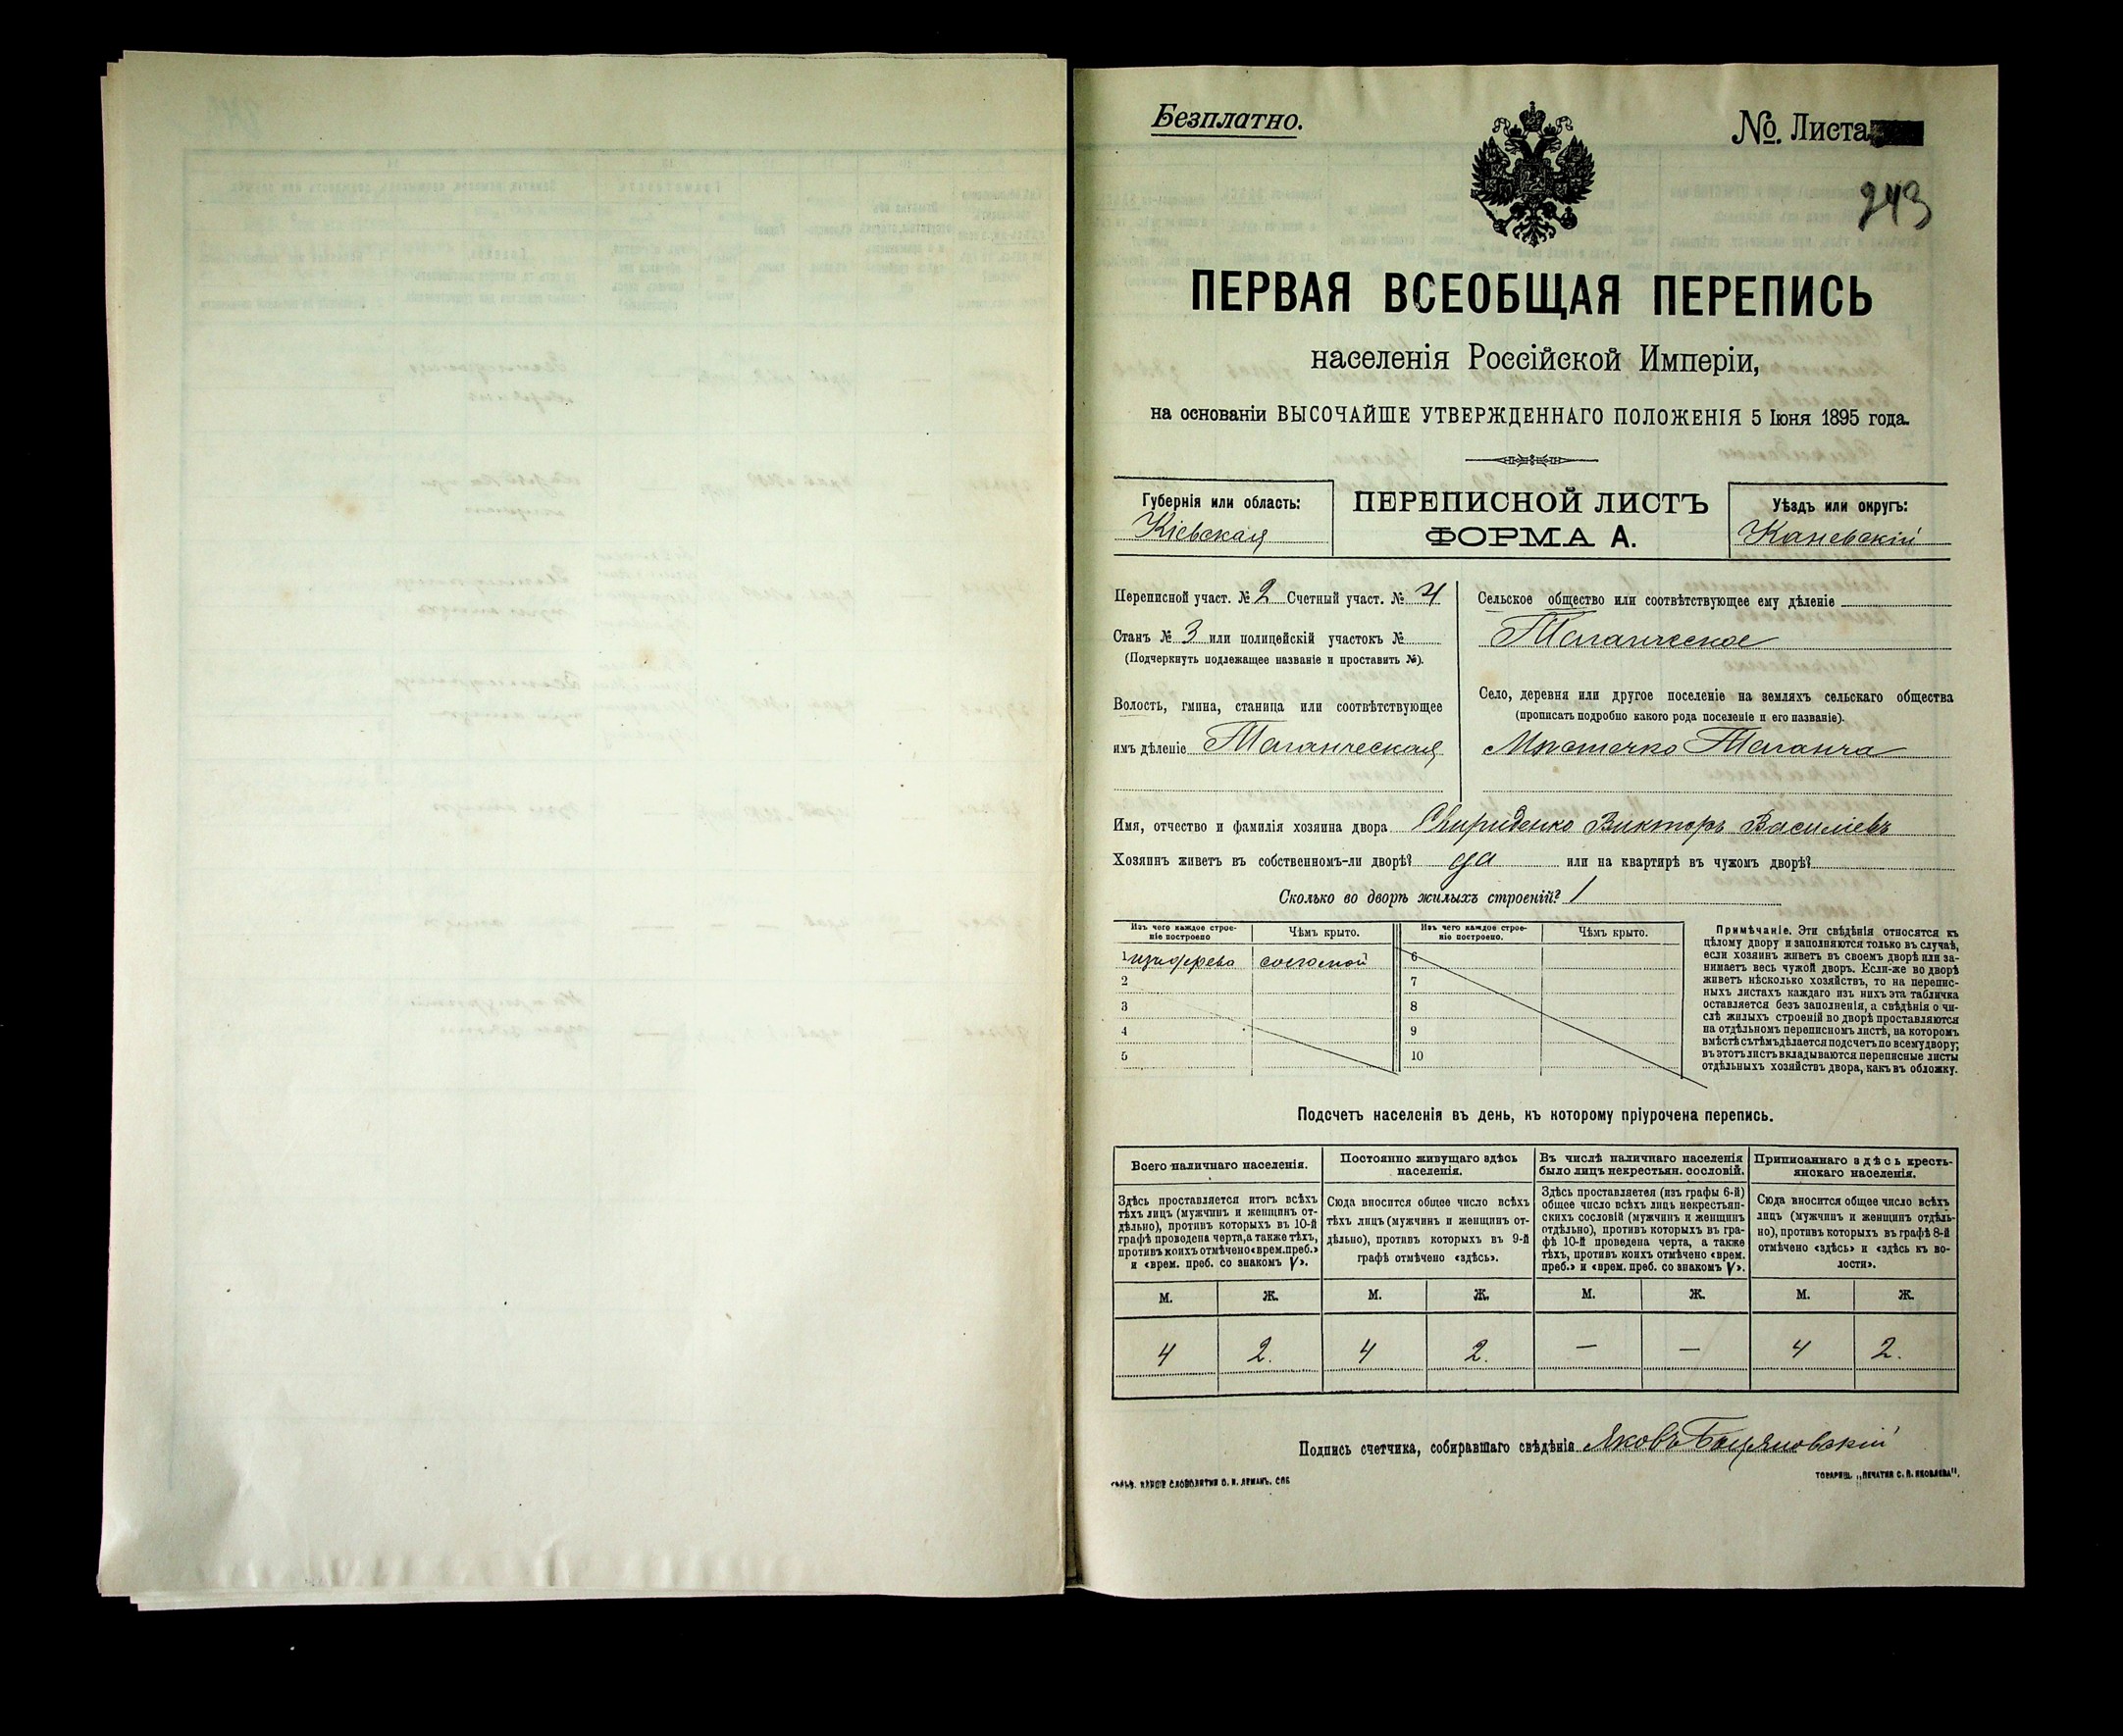 Безплатно.
№. Листа
243
ПЕРВАЯ ВСЕОБЩАЯ ПЕРЕПИСЬ
населенія Россійской Имперіи,
на основаніи ВЫСОЧАЙШЕ УТВЕРЖДЕННАГО ПОЛОЖЕНІЯ 5 Іюня 1895 года.
Губернія или область:
Кіевская
ПЕРЕПИСНОЙ ЛИСТЪ
ФОРМА А.
Уѣздъ или округъ:
Каневскій
Переписной участ. № 2 Счетный участ. № 4
Станъ № 3 или полицейскій участокъ №
(Подчеркнуть подлежащее названіе и проставить №).
Волость, гмина, станица или соотвѣтствующее
имъ дѣленіе Таганческая
Сельское общество или соотвѣтствующее ему дѣленіе
Таганческое
Село, деревня или другое поселеніе на земляхъ сельскаго общества
(прописать подробно какого рода поселеніе и его названіе).
Мѣстечко Таганча
Имя, отчество и фамилія хозяина двора Свириденко Викторъ Василіевъ
Хозяинъ живетъ въ собственномъ-ли дворѣ? да или на квартирѣ въ чужомъ дворѣ?
Сколько во дворѣ жилыхъ строеній? 1
Изъ чего каждое строе-
ніе построено
Чѣмъ крыто.
Изъ чего каждое строе-
ніе построено.
Чѣмъ крыто.
1 изъ дерева соломой
2
3
4
5
6
7
8
9
10
Примѣчаніе. Эти свѣдѣнія относятся къ
цѣлому двору и заполняются только въ случаѣ,
если хозяинъ живетъ въ своемъ дворѣ или за-
нимаетъ весь чужой дворъ. Если-же во дворѣ
живетъ нѣсколько хозяйствъ, то на перепис-
ныхъ листахъ каждаго изъ нихъ эта табличка
оставляется безъ заполненія, а свѣдѣнія о чи-
слѣ жилыхъ строеній во дворѣ проставляются
на отдѣльномъ переписномъ листѣ, на которомъ
вмѣстѣ съ тѣмъ дѣлается подсчетъ по всему двору;
въ этотъ листъ вкладываются переписные листы
отдѣльныхъ хозяйствъ двора, какъ въ обложку.
Подсчетъ населенія въ день, къ которому пріурочена перепись.
Всего наличнаго населенія.
Здѣсь проставляется итогъ всѣхъ
тѣхъ лицъ (мужчинъ и женщинъ от-
дѣльно), противъ которыхъ въ 10-й
графѣ проводена черта, а также тѣхъ,
противъ коихъ отмѣчено «врем. преб.»
и «врем. преб. со знакомъ V».
Постоянно живущаго здѣсь
населенія.
Сюда вносится общее число всѣхъ
тѣхъ лицъ (мужчинъ и женщинъ от-
дѣльно), противъ которыхъ въ 9-й
графѣ отмѣчено «здѣсь».
Въ числѣ наличнаго населенія
было лицъ некрестьян. сословій.
Здѣсь проставляется (изъ графы 6-й)
общее число всѣхъ лицъ некрестьян-
скихъ сословій (мужчинъ и женщинъ
отдѣльно), противъ которыхъ въ гра-
фѣ 10-й проведена черта, а также
тѣхъ, противъ коихъ отмѣчено «врем.
преб.» и «врем. преб. со знакомъ V».
Приписаннаго здѣсь кресть-
янскаго населенія.
Сюда вносится общее число всѣхъ
лицъ (мужчинъ и женщинъ отдѣль-
но), противъ которыхъ въ графѣ 8-й
отмѣчено «здѣсь» и «здѣсь къ во-
лости».
М. Ж. М. Ж. М. Ж. М. Ж.
4 2. 4 2. — — 4 2.
Подпись счетчика, собиравшаго свѣдѣнія Яковъ
СЛОВОЛИТНЯ О. И. ЛЕМАНЪ. СПБ
ТОВАРИЩ. „ПЕЧАТНЯ С. П. ЯКОВЛЕВА".